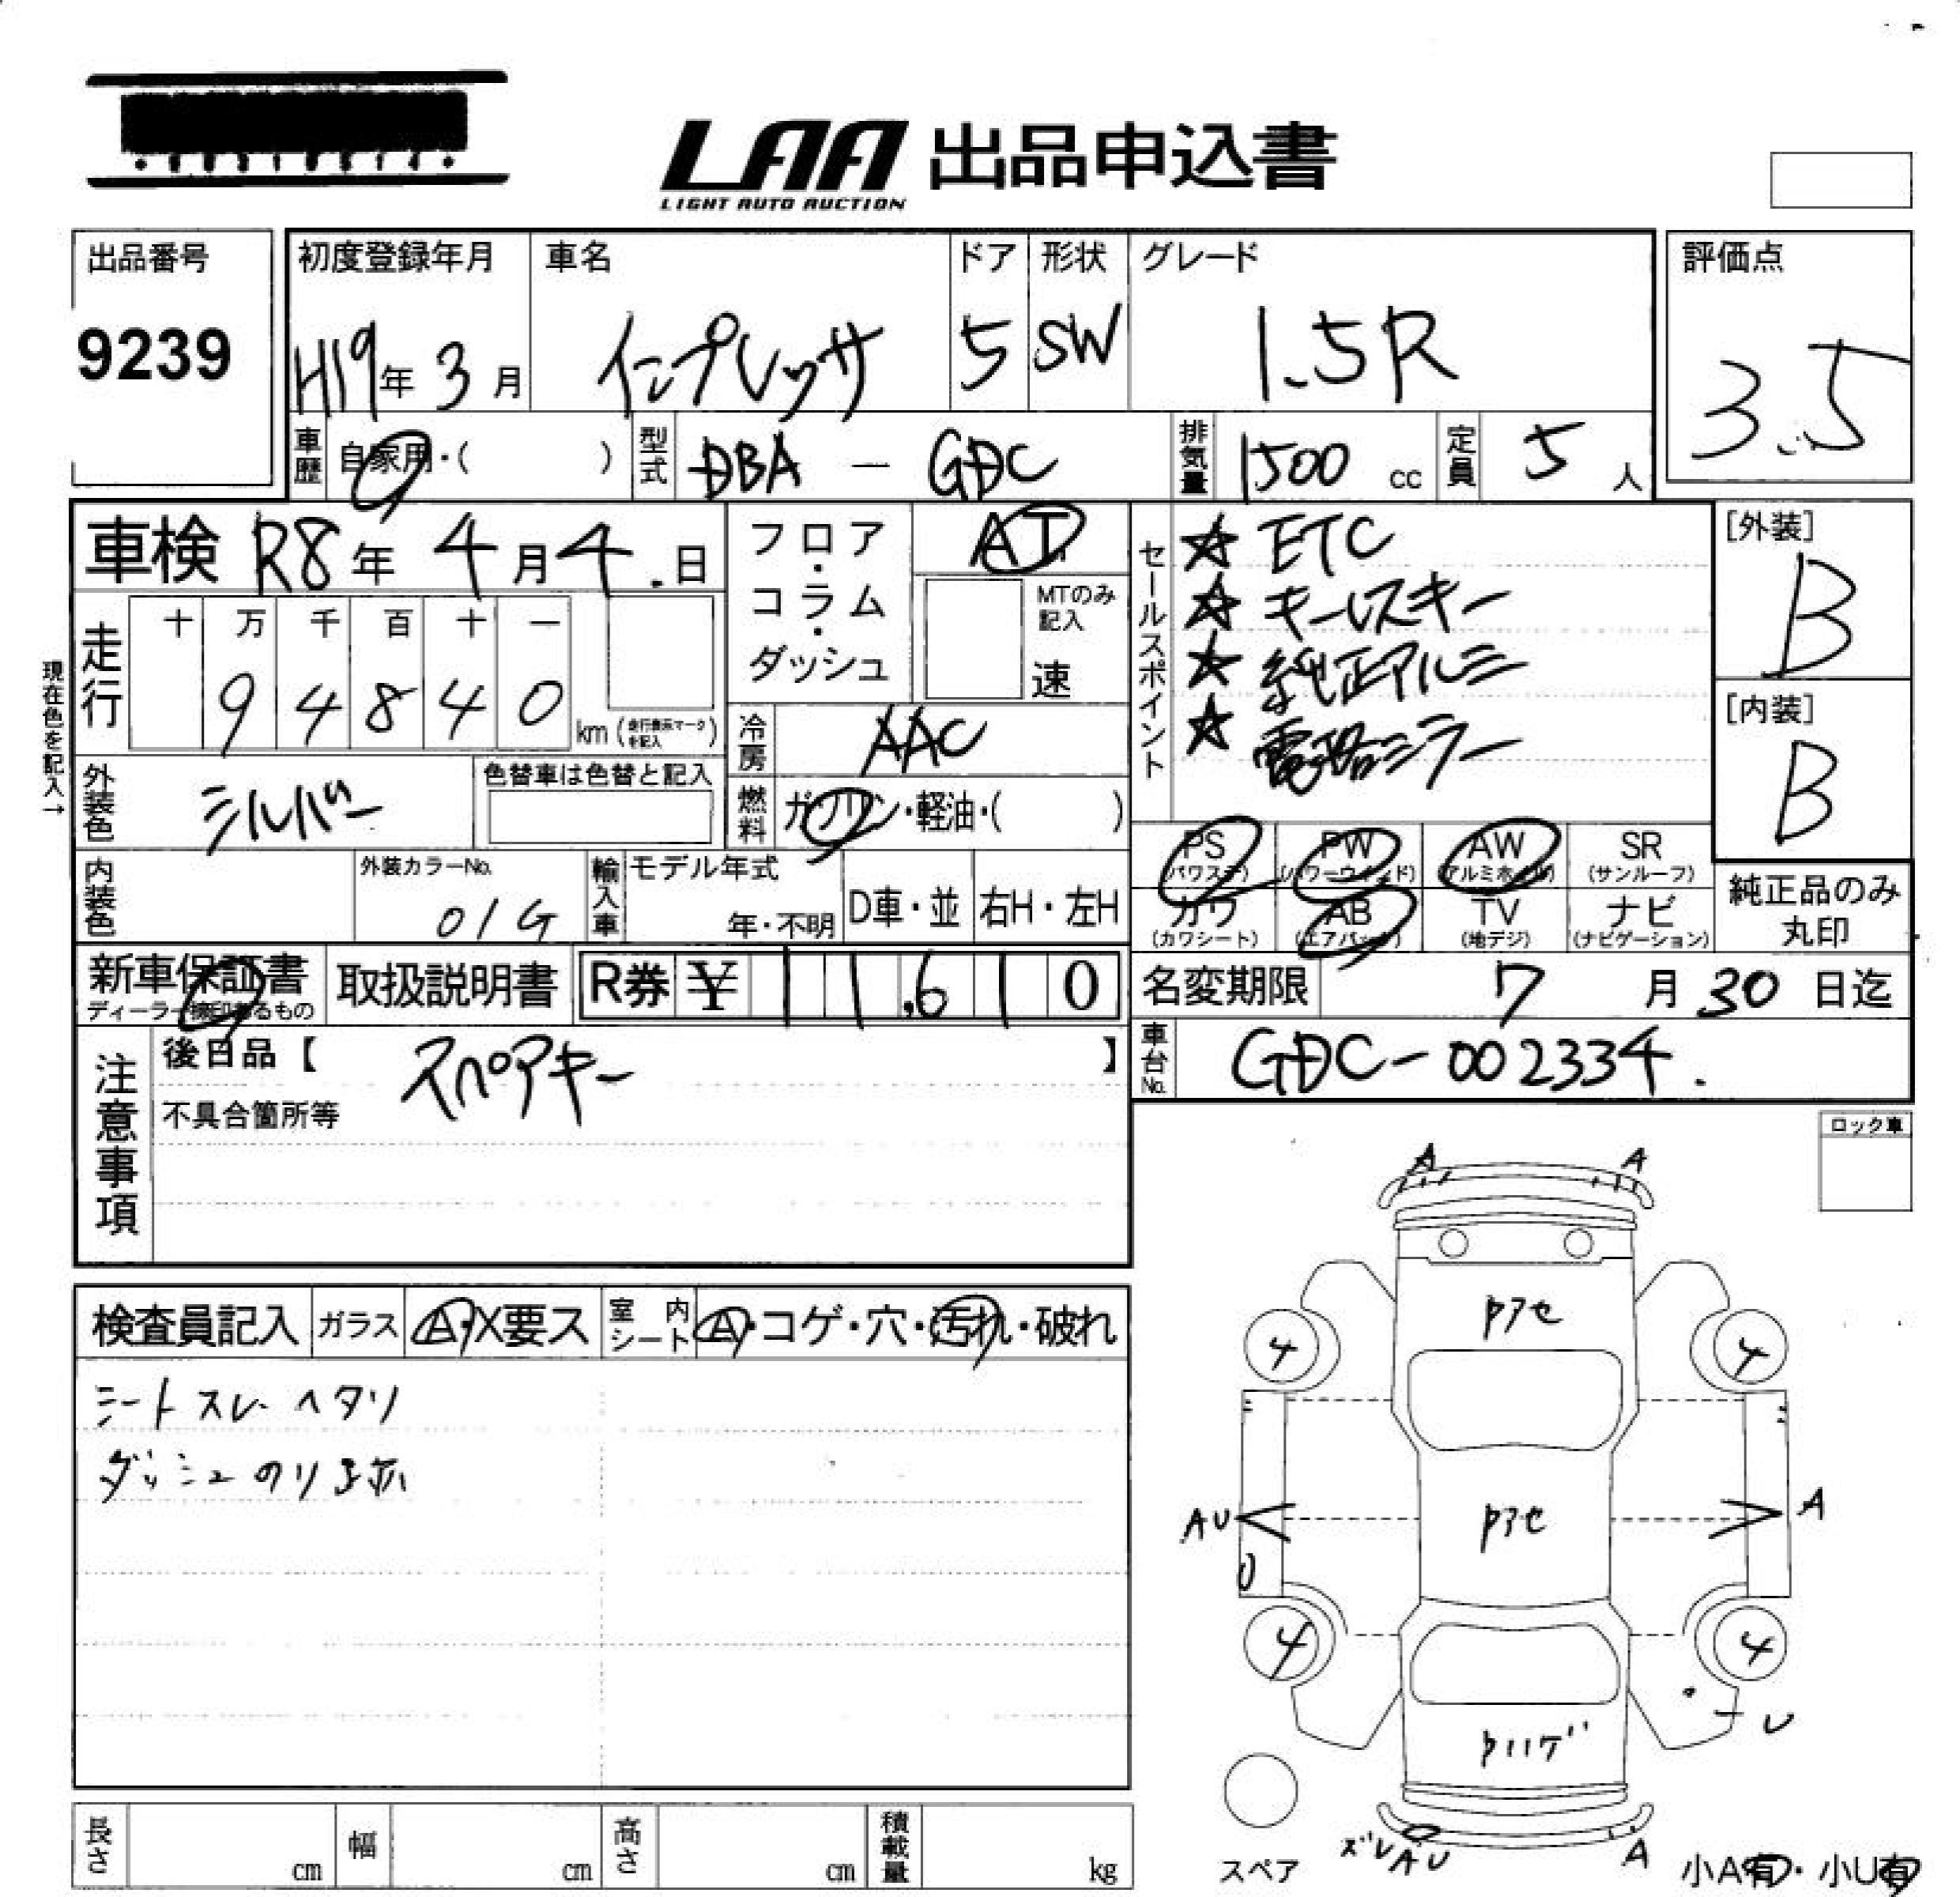 LAA 出品申込書
LIGHT AUTO AUCTION
出品番号
9239
初度登録年月
H19年 3月
車名
インプレッサ
ドア
5
形状
SW
グレード
1.5R
評価点
3.5
車歴 自家用・( )
型式 DBA — GDC
排気量 1500 cc
定員 5 人
車検 R8年 4月 4.日
フロア・コラム・ダッシュ
AT
MTのみ記入
速
セールスポイント
☆ ETC
☆ キーレスキー
☆ 純正アルミ
☆ 電格ミラー
[外装]
B
[内装]
B
現在色を記入→
走行
十 万 千 百 十 一
9 4 8 4 0
km (走行表示マークを記入)
冷房 AAC
外装色 シルバー
色替車は色替と記入
燃料 ガソリン・軽油・( )
PS (パワステ)
PW (パワーウインド)
AW (アルミホイル)
SR (サンルーフ)
内装色
外装カラーNo.
01G
輸入車
モデル年式
年・不明
D車・並
右H・左H
カワ (カワシート)
AB (エアバッグ)
TV (地デジ)
ナビ (ナビゲーション)
純正品のみ丸印
新車保証書
ディーラー捺印あるもの
取扱説明書
R券 ¥ 11,610
名変期限 7月 30日迄
注意事項
後日品【 スペアキー 】
不具合箇所等
車台No. GDC-002334.
ロック車
検査員記入
ガラス A・X要ス
室内シート A・コゲ・穴・汚れ・破れ
シートスレ ヘタリ
ダッシュ のり跡
A A
4 4
AU A
U
4 4
U
ズレ AU A
スペア
小A有・小U有
長さ cm
幅 cm
高さ cm
積載量 kg